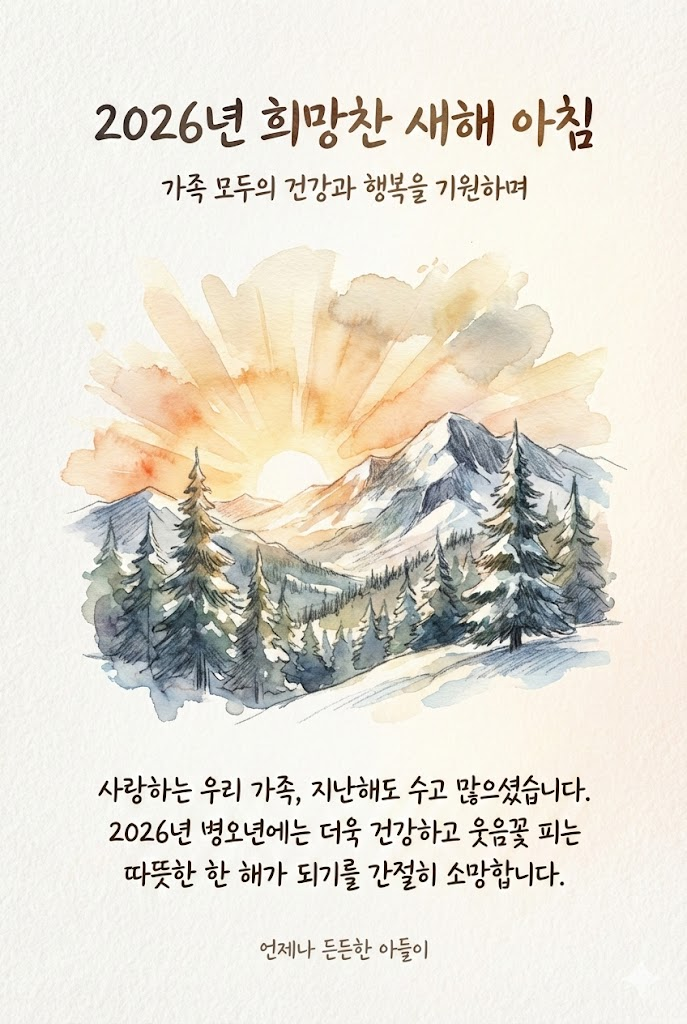 2026년 희망찬 새해 아침
가족 모두의 건강과 행복을 기원하며
사랑하는 우리 가족, 지난해도 수고 많으셨습니다.
2026년 병오년에는 더욱 건강하고 웃음꽃 피는
따뜻한 한 해가 되기를 간절히 소망합니다.
언제나 든든한 아들이